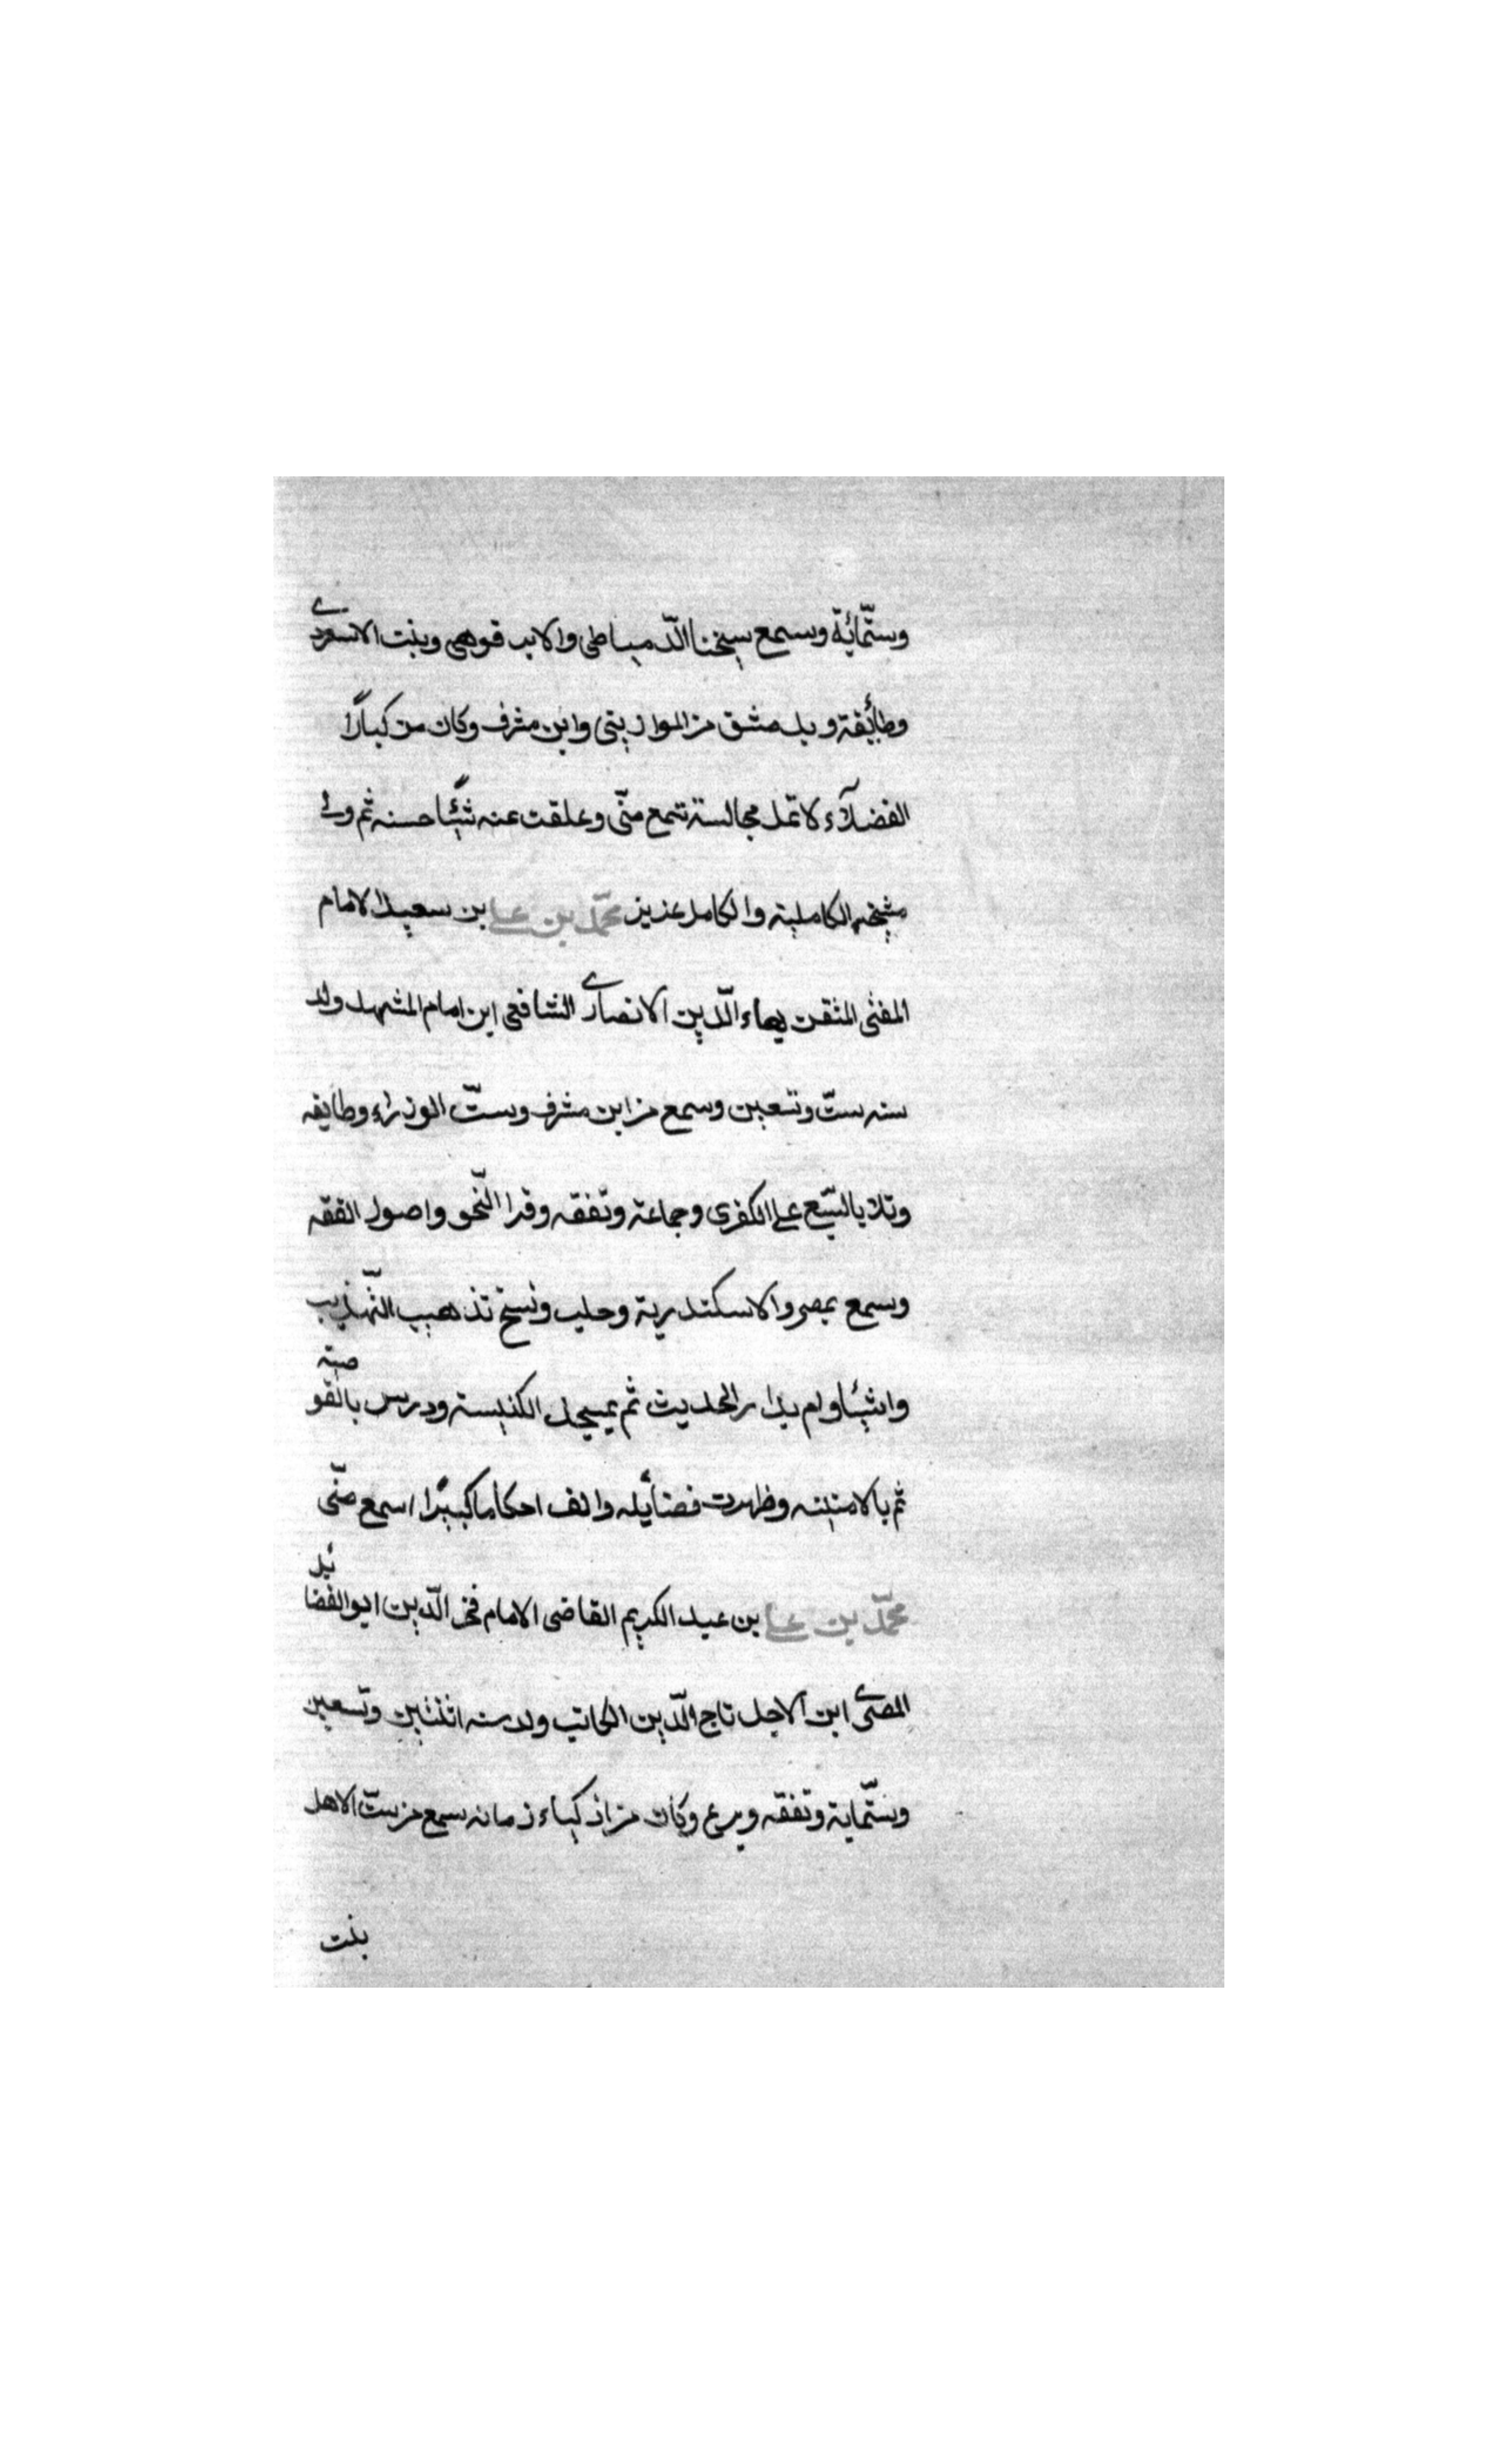 وستّمائة وسمع شيخنا الدّمياطى والابرقوهى وبنت الاسعردى
وطائفة وبدمشق من الموازينى وابن مشرف وكان من كبارا
الفضلآء لا تمل مجالسته سمع منّى وعلقت عنه شيئًا حسنه ثم ولى
مشيخه الكاملية والكامل عزيز محمّد بن على بن سعيد الامام
المفتى المتقن بهاء الدّين الانصارى الشافعى ابن امام المشهد ولد
سنه ستّ وتسعين وسمع من ابن مشرف وستّ الوزراء وطايفه
وتلا بالسّبع على الكفرى وجماعة وتفقه وقرا النّحو واصول الفقه
وسمع بمصر والاسكندرية وحلب ونسخ تذهيب التّهذيب
واشيئا وام بدار الحديث ثم بمسجد الكنيسة ودرس بالقوصية
ثم بالامينه وظهرت فضائله والف احكاما كبيرًا اسمع منّى
محمّد بن على بن عبد الكريم القاضى الامام فخر الدّين ابو الفضائل
المصرى ابن الاجل تاج الدّين الكاتب ولد سنه اثنتين وتسعين
وستّماية وتفقه وبرع وكان من اذكياء زمانه سمع من ستّ الاهل
بنت